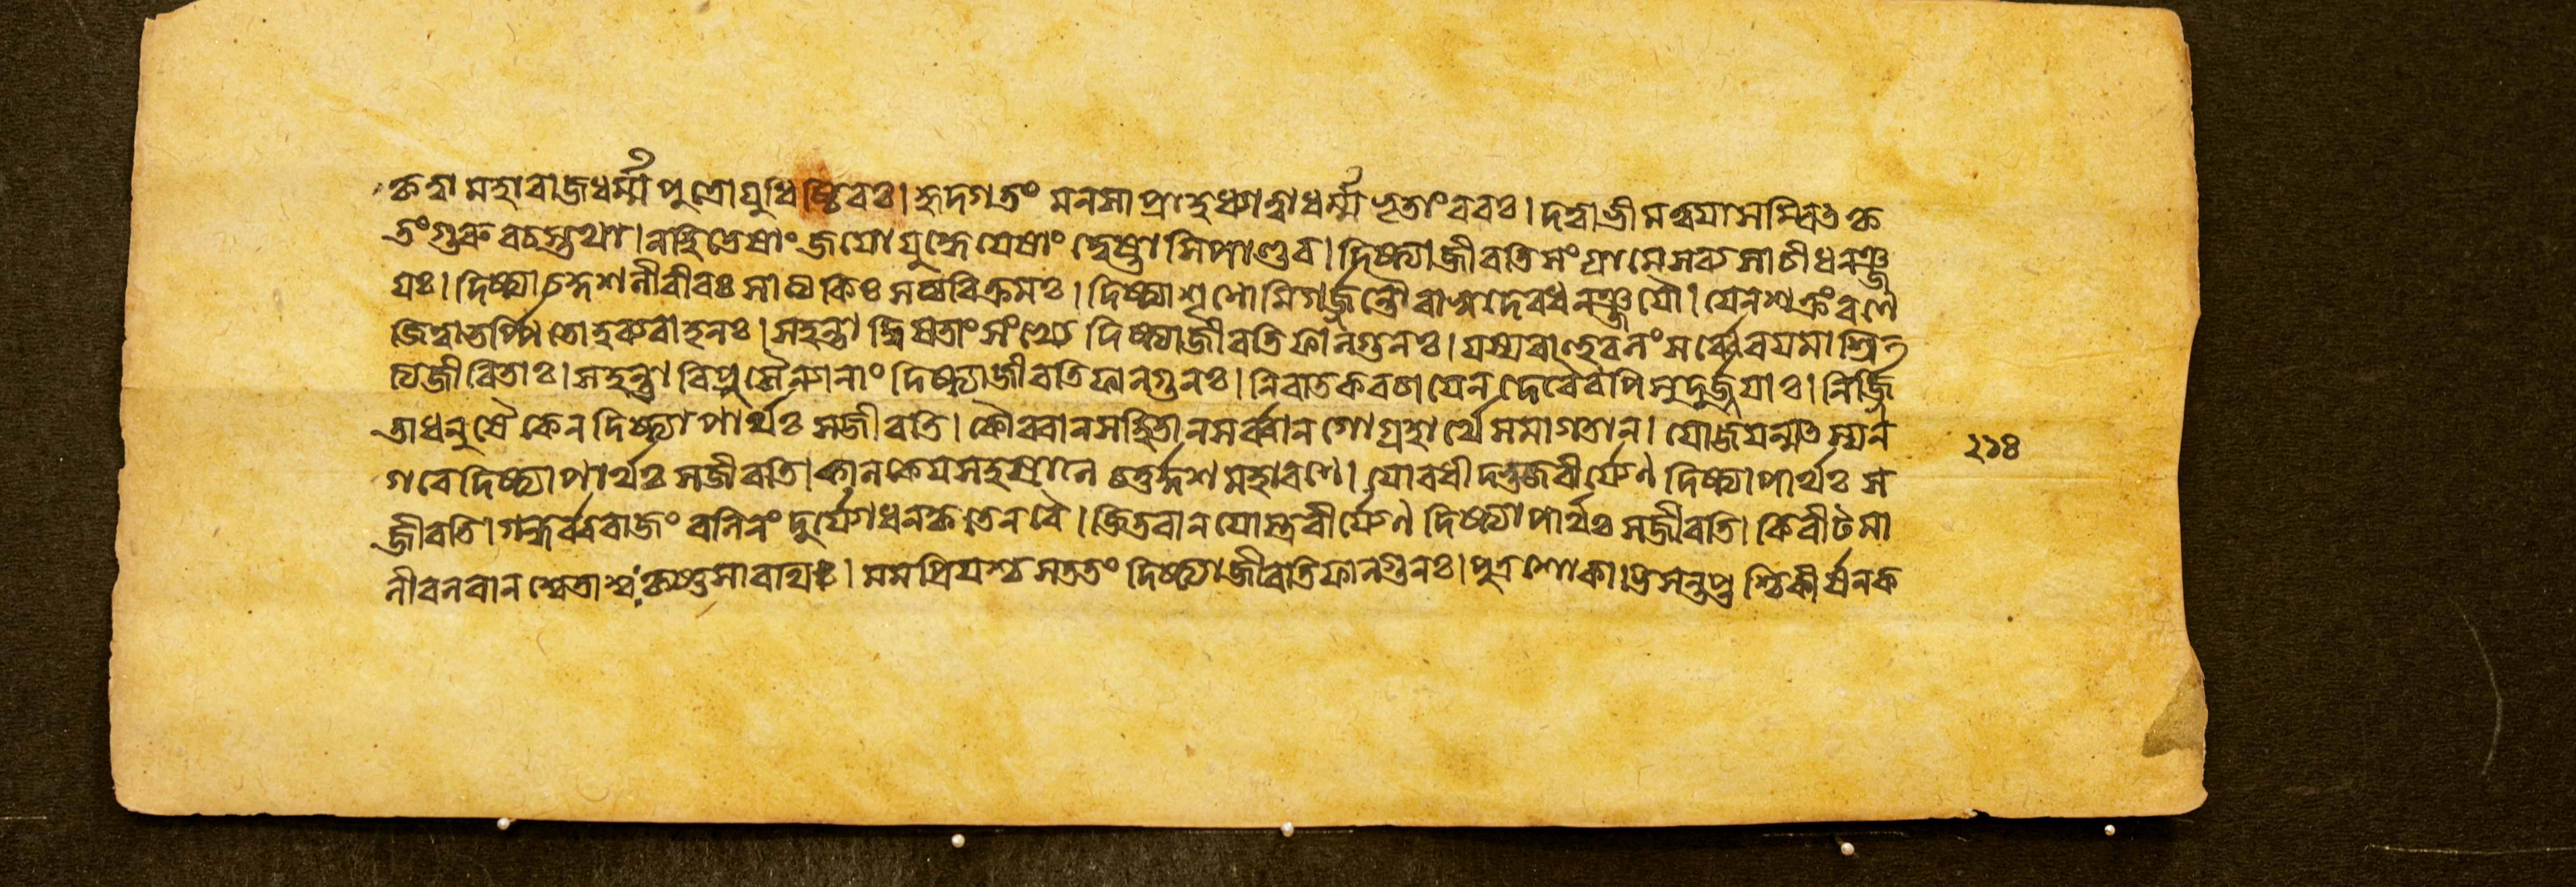 কৃত্বা মহারাজ ধর্ম্মপুত্রো যুধিষ্ঠিরঃ। হৃদগতং মনসা প্রাহ ধ্যাত্বা ধর্ম্মভৃতাং বরঃ।
তং গুরুবচস্তথা। নহি তেষাং জয়ো যুদ্ধে যেষাং দ্বেষ্টাসি পাণ্ডব। দিষ্ট্যা জীবতি সংগ্রামে সব্যসাচী ধনঞ্জ
য়ঃ। দিষ্ট্যা চ কুশলী বীরঃ সাত্যকিঃ সত্যবিক্রমঃ। দিষ্ট্যা শৃণোমি গর্জ্জন্তৌ বাসুদেবধনঞ্জয়ৌ। যেন শক্রং রণে
জিত্বা তর্পিতো হব্যবাহনঃ। স হন্তা দ্বিষতাং সংখ্যে দিষ্ট্যা জীবতি ফালগুনঃ। যস্য বাহুবলং সর্ব্বে বয়মাশ্রি
ত্য জীবিতাঃ। স হন্তা রিপুসৈন্যানাং দিষ্ট্যা জীবতি ফালগুনঃ। নিবাতকবচা যেন দেবৈরপি সুদুর্জ্জয়াঃ। নির্জ্জি
তা ধনুষৈকেন দিষ্ট্যা পার্থঃ স জীবতি। কৌরবান সহিতান সর্ব্বান গোগ্রহার্থে সমাগতান। যোজয়ন্মৎস্যন
গরে দিষ্ট্যা পার্থঃ স জীবতি। কালকেয়সহস্রানি চতুর্দ্দশ মহারণে। যোবধীদ্ভুজবীর্য্যেণ দিষ্ট্যা পার্থঃ স
জীবতি। গন্ধর্ব্বরাজং বলিনং দুর্য্যোধনকৃতেন বৈ। জিতবান যোস্ত্রবীর্য্যেণ দিষ্ট্যা পার্থঃ স জীবতি। কিরীটমা
লী বলবান শ্বেতাশ্বঃ কৃষ্ণসারথিঃ। মম প্রিয়শ্চ সততং দিষ্ট্যা জীবতি ফালগুনঃ। পুত্রশোকাভিসন্তপ্তশ্চিকীর্ষন ক
২১৪